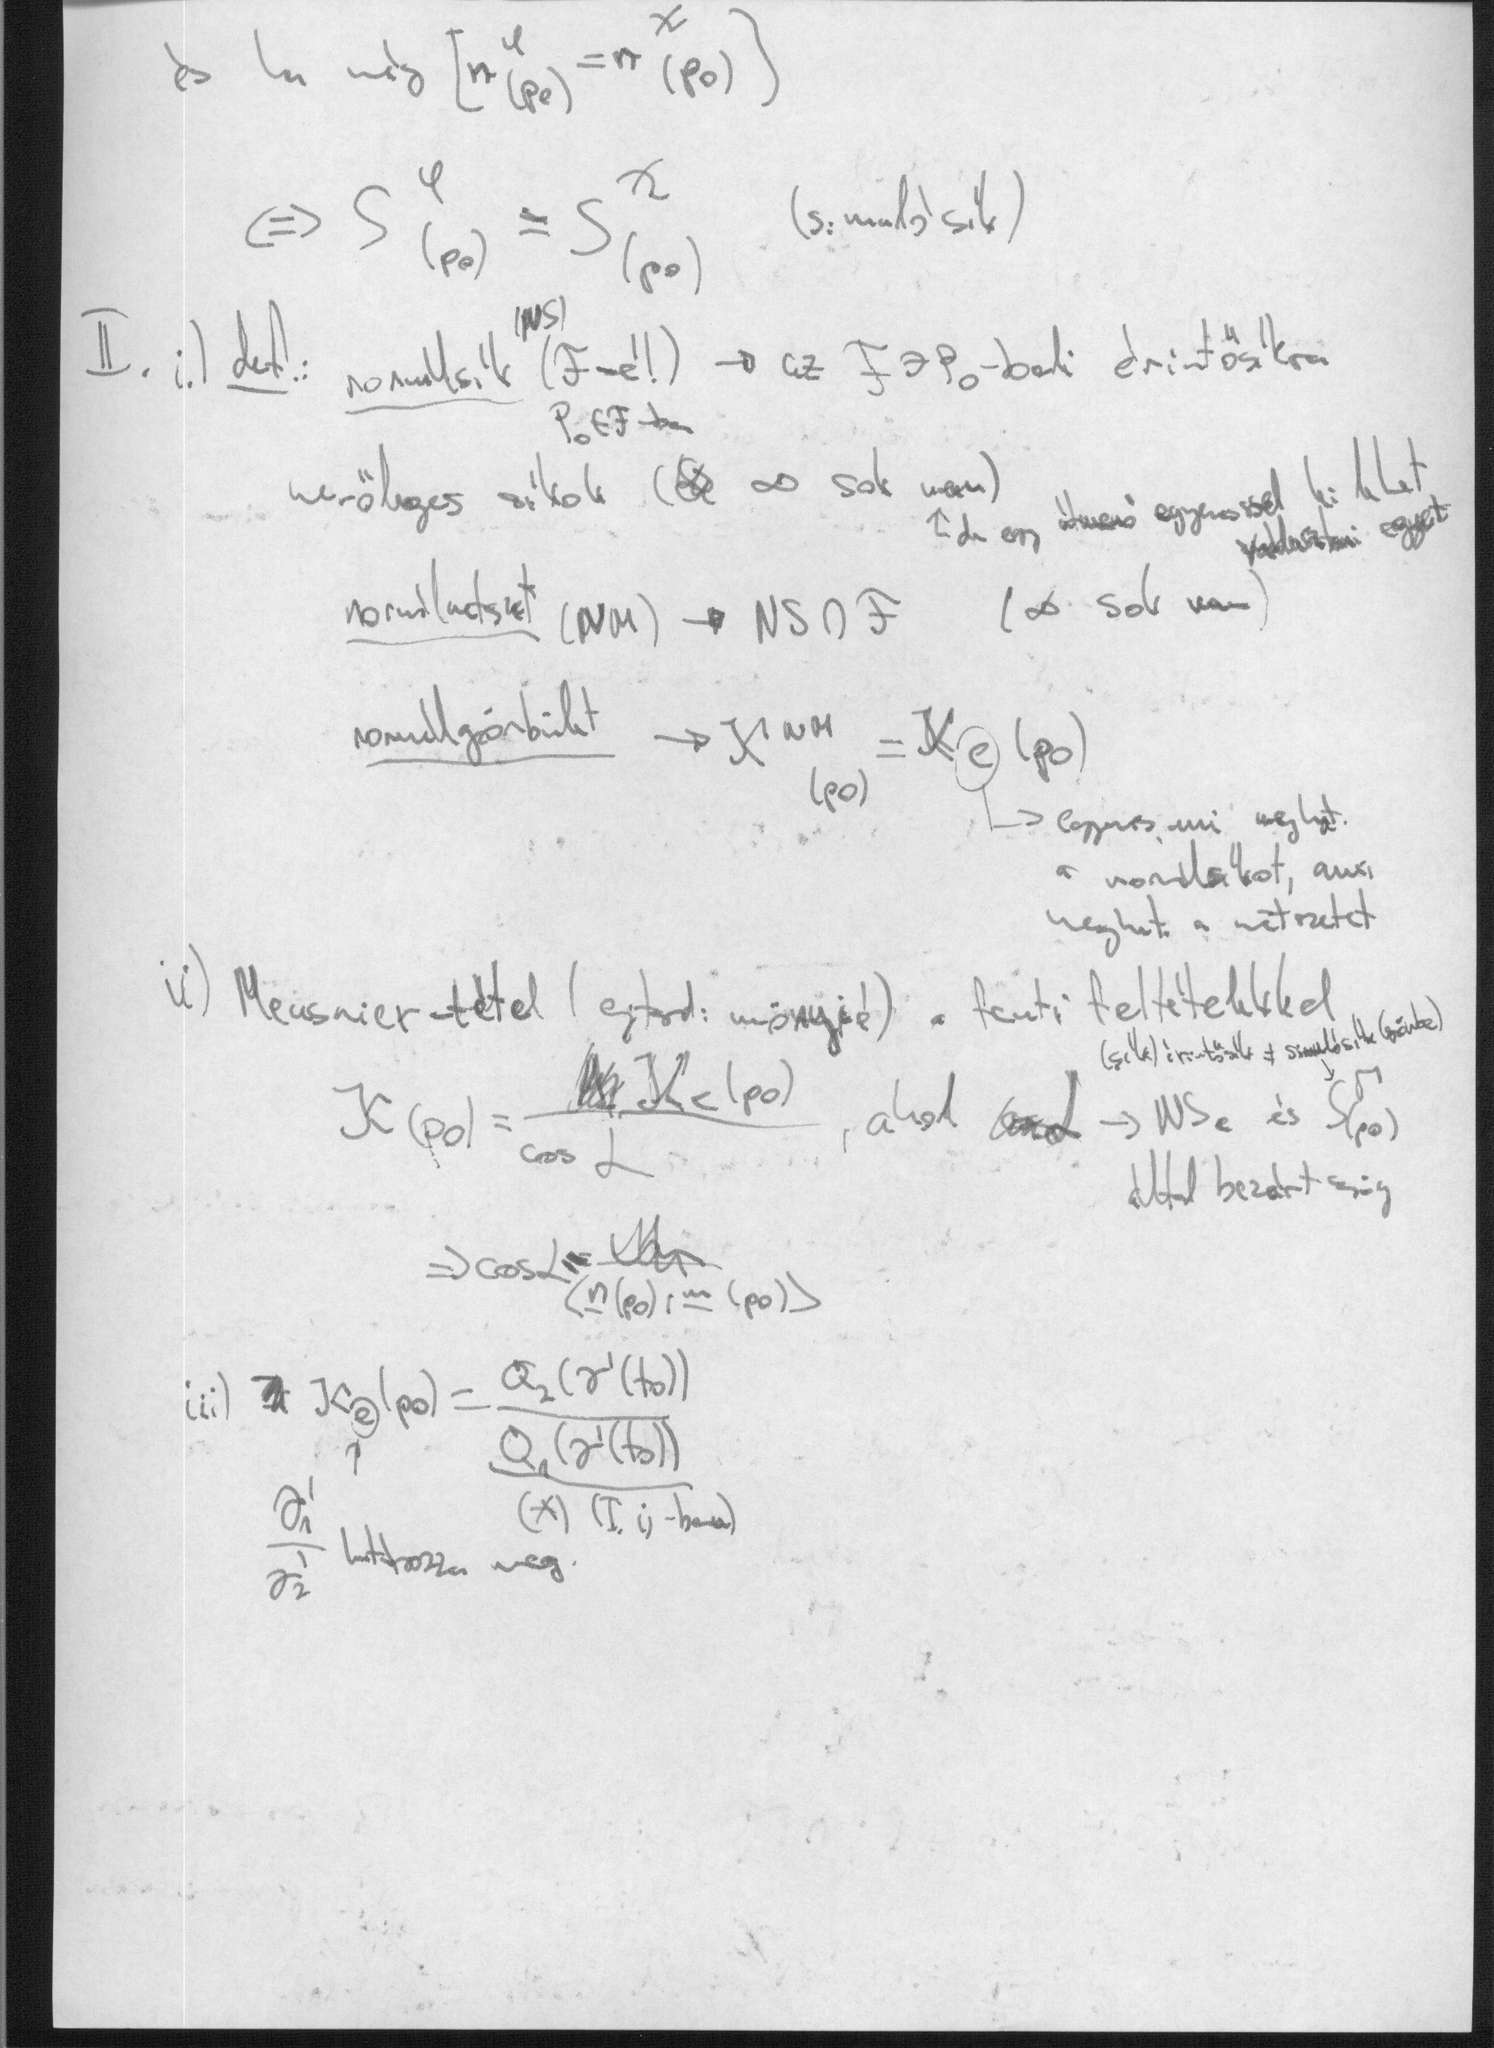 és ha még [n^φ(p₀) = n^χ(p₀)]
⟺ S^φ(p₀) = S^χ(p₀) (simulósík)
II. i.) def.: normálsík (NS) (F-é!) → az F ∋ P₀-beli érintősíkra
P₀∈F-ben
merőleges síkok (∞ sok van)
↑ de egy átmenő egyenessel ki lehet
választani egyet
normálmetszet (NM) → NS ∩ F (∞ sok van)
normálgörbület → K^NM(p₀) = K_e(p₀)
↳ egyenes, ami meghat.
a normálsíkot, ami
meghat. a metszetet
ii) Meusnier-tétel (ejtsd: mőnyié) a fenti feltételekkel
(sík) érintősík ≠ simulósík (görbe)
K(p₀) = K_e(p₀) / cos α, ahol α → NS_e és S^Γ(p₀)
által bezárt szög
⇒ cos α = ⟨n(p₀); m(p₀)⟩
iii) K_e(p₀) = Q₂(γ'(t₀)) / Q₁(γ'(t₀))
↑ (*) (I. i)-ben)
γ₁' / γ₂' határozza meg.